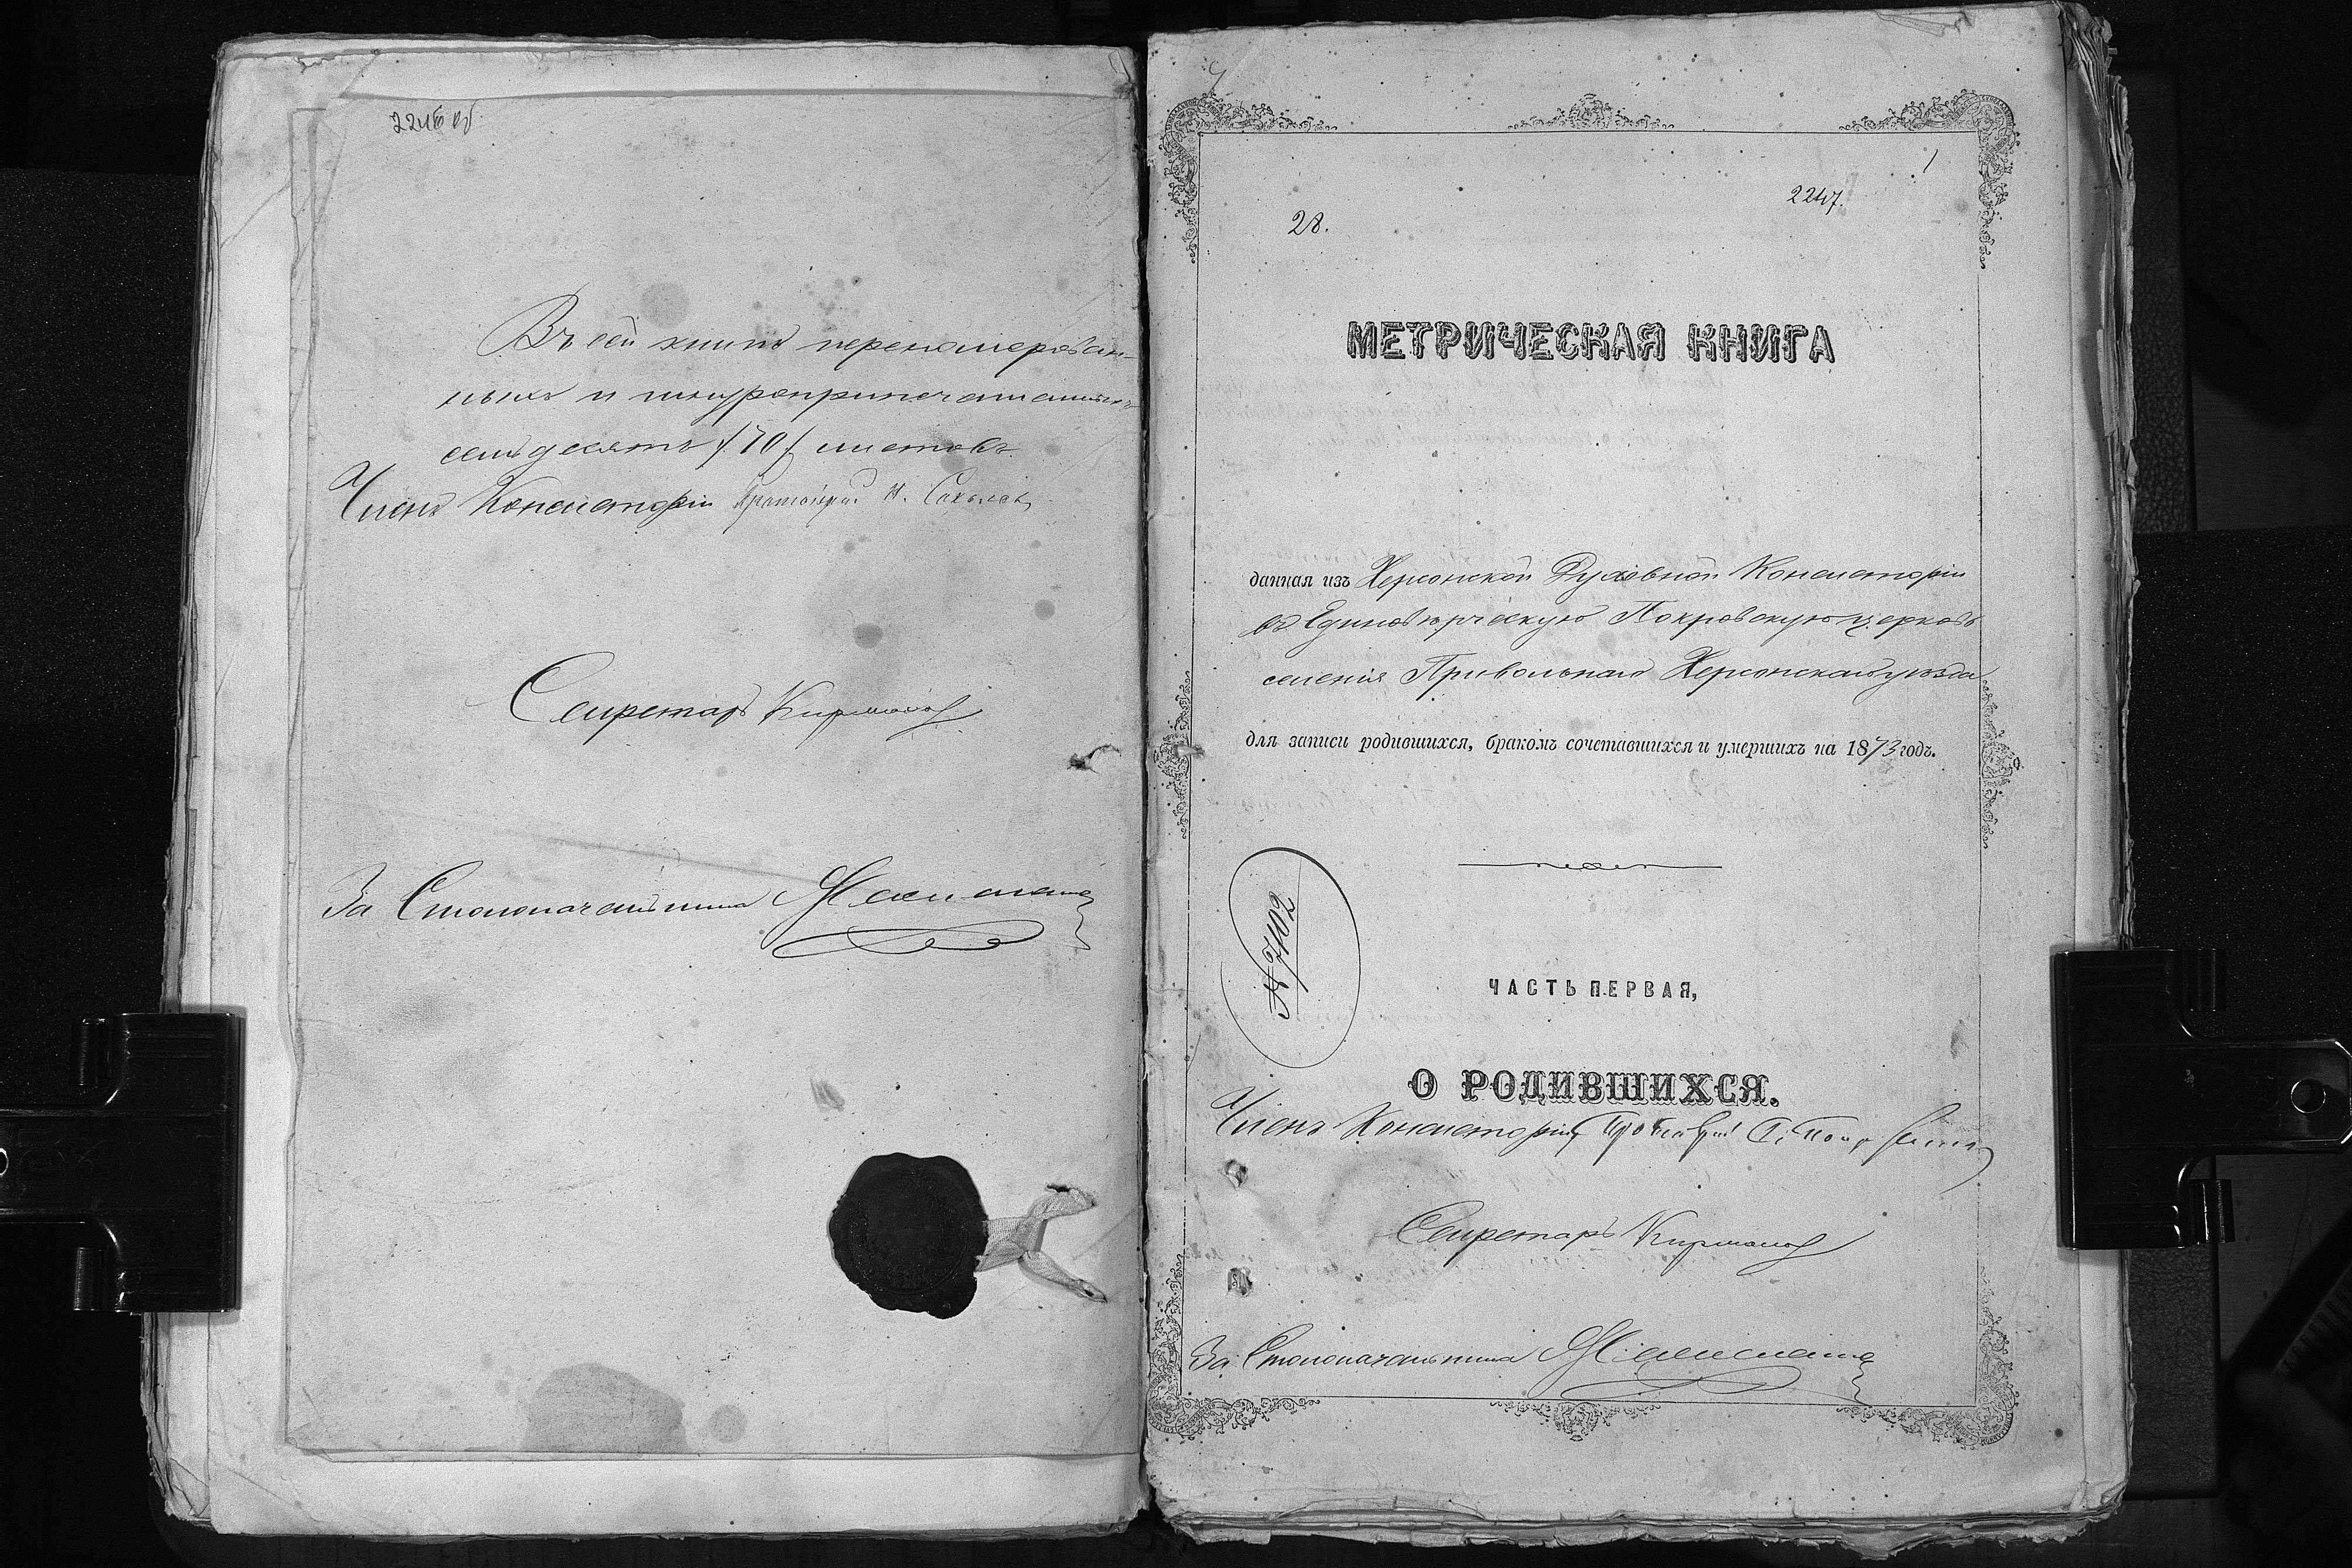 2246 об
Въ сей книгѣ перенумерован-
ныхъ и шнуроприпечатанныхъ
семьдесятъ /70/ листовъ.
Членъ Консисторіи Протоіерей Н. Соколовъ
Секретарь
За Столоначальника
1
2247.
28.
МЕТРИЧЕСКАЯ КНИГА
данная изъ Херсонской Духовной Консисторіи
въ Единовѣрческую Покровскую церковь
селенія Привольнаго Херсонскаго уѣзда
для записи родившихся, бракомъ сочетавшихся и умершихъ на 1873 годъ.
№ 7102
ЧАСТЬ ПЕРВАЯ,
О РОДИВШИХСЯ.
Членъ Консисторіи, Протоіерей
Секретарь
За Столоначальника